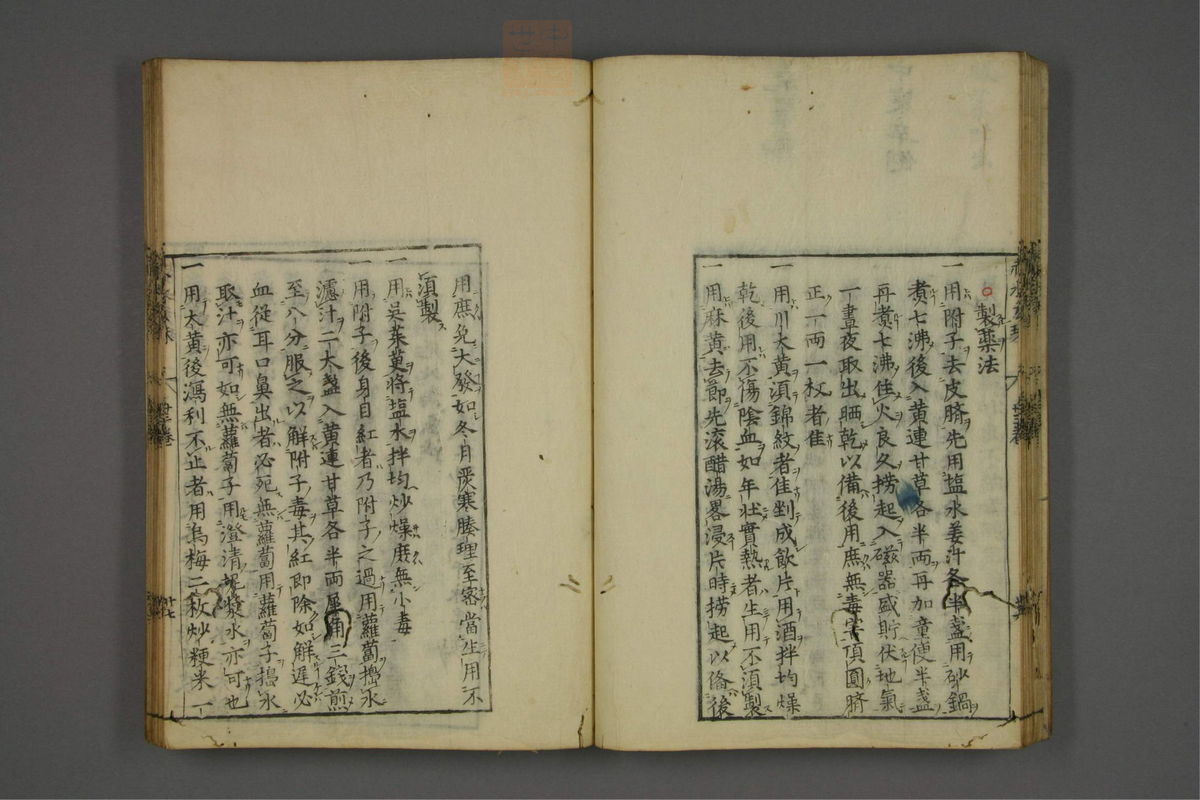 製藥法
一用附子去皮臍先用塩水姜汁各半盞用砂鍋
煑七沸後入黄連甘草各半両再加童便半盞
再煑七沸住火良久撈起入磁器盛貯伏地氣
一晝夜取出晒乾以備後用庶無毒害頂圓臍
正一両一枚者佳
一用川大黄湏錦紋者佳剉成飲片用酒拌均燥
乾後用不傷陰血如年壮實熱者生用不湏製
一用麻黄去節先滚醋湯畧浸片時撈起以俻後
用庶免大發如冬月嚴寒腠理至密當生用不
湏製
一用吴茱萸将塩水拌均炒燥庶無小毒
一用附子後身目紅者乃附子之過用蘿蔔搗水
濾汁二大盞入黄連甘草各半両犀角三錢煎
至八分服之以解附子毒其紅即除如解遲必
血従耳口鼻出者必死無蘿蔔用蘿蔔子搗水
取汁亦可如無蘿蔔子用澄清泥漿水亦可也
一用大黄後瀉利不止者用烏梅二枚炒粳米一